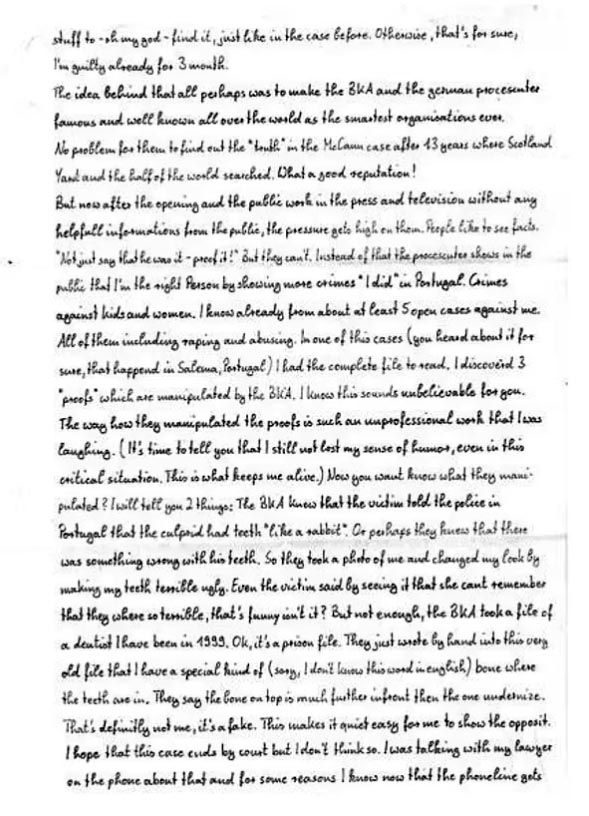 stuff to - oh my god - find it, just like in the case before. Otherwise, that's for sure,
I'm guilty already for 3 month.
The idea behind that all perhaps was to make the BKA and the german procesenter
famous and well known all over the world as the smartest organisations ever.
No problem for them to find out the "truth" in the McCann case after 13 years where Scotland
Yard and the half of the world searched. What a good reputation!
But now after the opening and the public work in the press and television without any
helpfull informations from the public, the pressure gets high on them. People like to see facts.
"Not just say that he was it - proof it!" But they can't. Instead of that the procesenter shows in the
public that I'm the right Person by showing more crimes "I did" in Portugal. Crimes
against kids and women. I know already from about at least 5 open cases against me.
All of them including raping and abusing. In one of this cases (you heard about it for
sure, that happend in Salema, Portugal) I had the complete file to read. I discoverd 3
"proofs" which are manipulated by the BKA. I know this sounds unbelievable for you.
The way how they manipulated the proofs is such an unprofessional work that I was
laughing. (It's time to tell you that I still not lost my sense of humor, even in this
critical situation. This is what keeps me alive.) Now you want know what they mani-
pulated? I will tell you 2 things: The BKA knew that the victim told the police in
Portugal that the culprid had teeth "like a rabbit". Or perhaps they knew that there
was something wrong with his teeth. So they took a photo of me and changed my look by
making my teeth terrible ugly. Even the victim said by seeing it that she cant remember
that they where so terrible, that's funny isn't it? But not enough, the BKA took a file of
a dentist I have been in 1999. Ok, it's a prison file. They just wrote by hand into this very
old file that I have a special kind of (sorry, I don't know this word in english) bone where
the teeth are in. They say the bone on top is much further infront then the one undernize.
That's definitly not me, it's a fake. This makes it quiet easy for me to show the opposit.
I hope that this case ends by court but I don't think so. I was talking with my lawyer
on the phone about that and for some reasons I know now that the phoneline gets